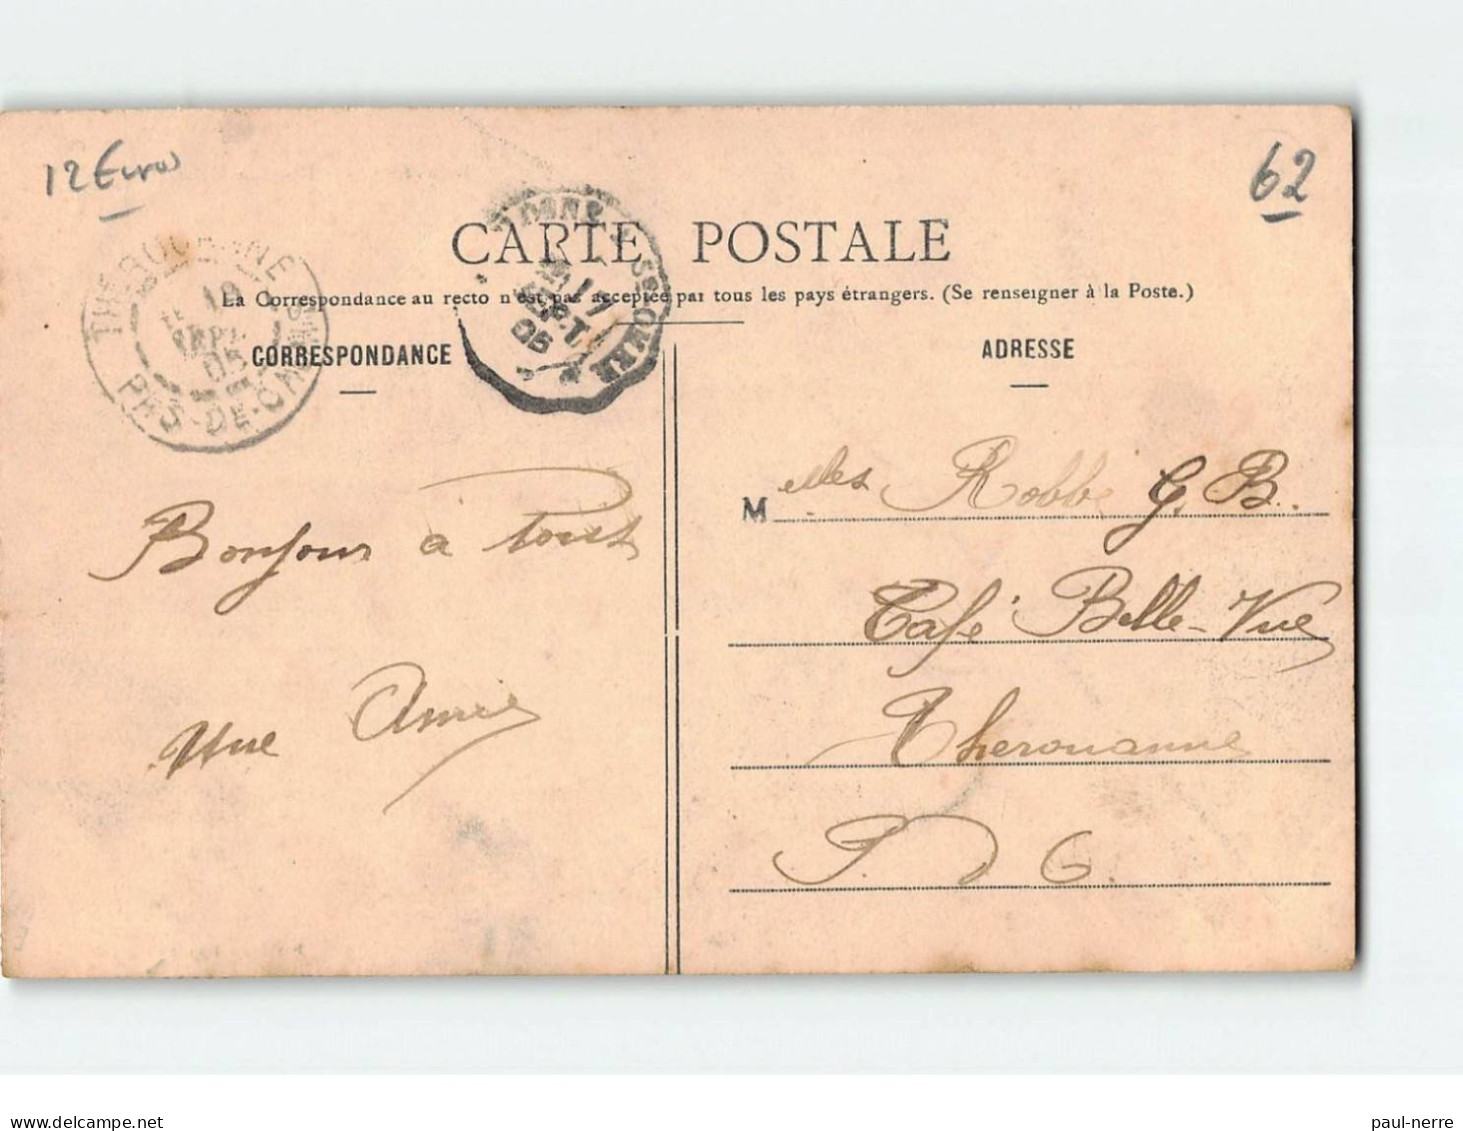 12 Euros
62
CARTE POSTALE
La Correspondance au recto n'est pas acceptée par tous les pays étrangers. (Se renseigner à la Poste.)
THEROUANNE
PAS-DE-CALAIS
SEPT
05
17
SEPT
05
St-OMER
CORRESPONDANCE
ADRESSE
Bonjour à tous
Une Amie
Melles Robbe G. B.
Café Belle-Vue
Therouanne
P. D C.
paul-nerre